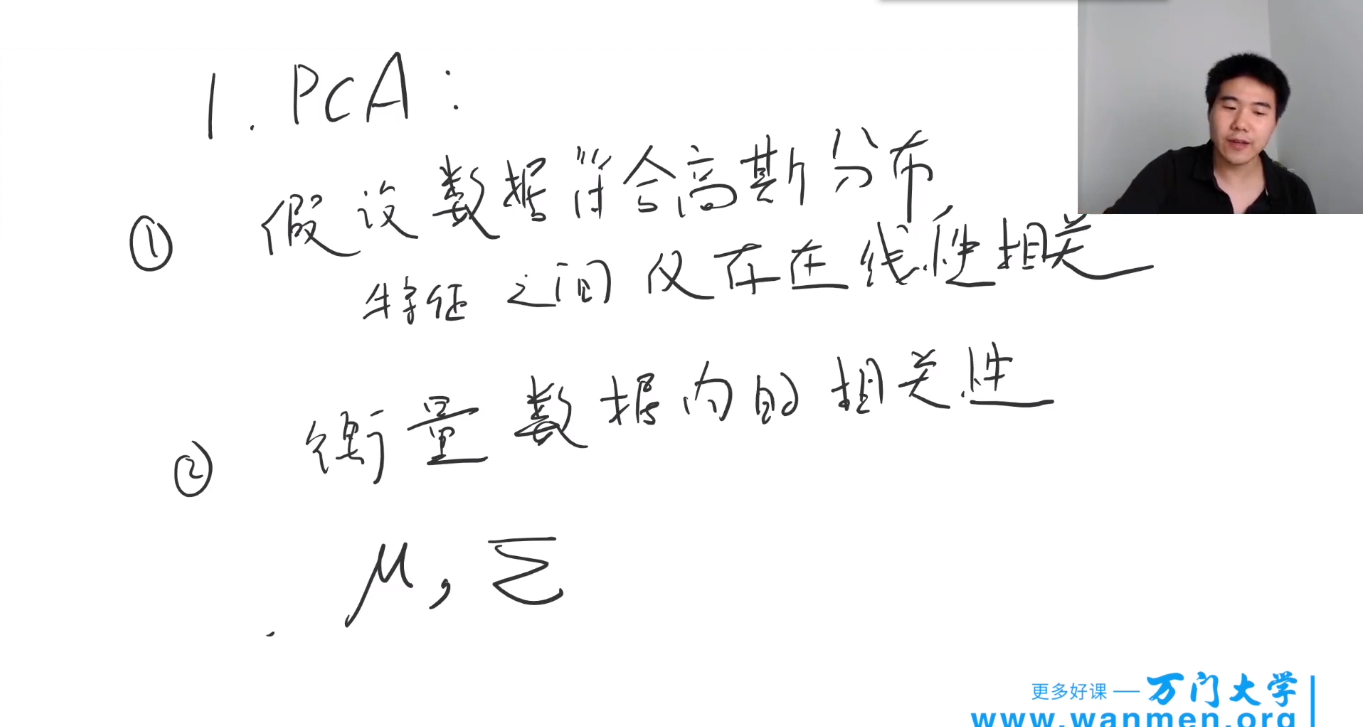 1. PCA:
① 假设数据符合高斯分布,
特征之间仅存在线性相关
② 衡量数据内的相关性
μ, Σ
更多好课 — 万门大学
www.wanmen.org